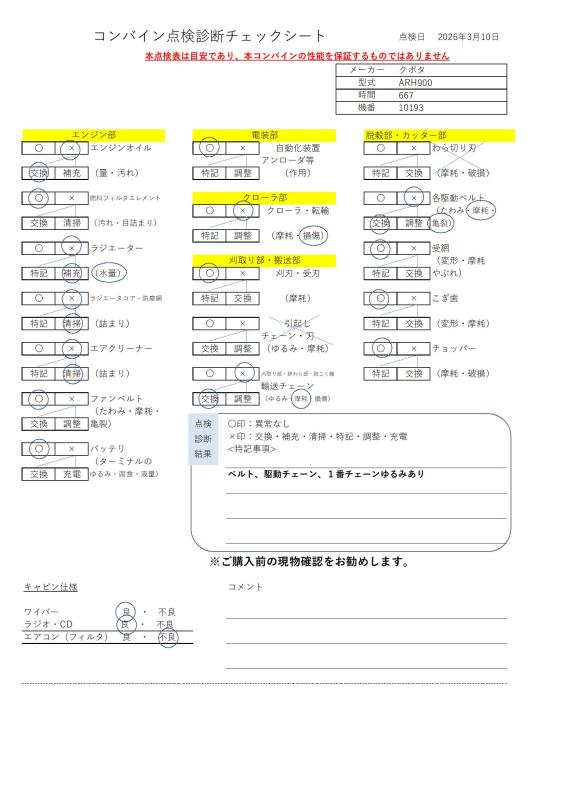 コンバイン点検診断チェックシート
点検日 2026年3月10日
本点検表は目安であり、本コンバインの性能を保証するものではありません
メーカー クボタ
型式 ARH900
時間 667
機番 10193
エンジン部
〇 × エンジンオイル
交換 補充 （量・汚れ）
〇 × 燃料フィルタエレメント
交換 清掃 （汚れ・目詰まり）
〇 × ラジエーター
特記 補充 （水量）
〇 × ラジエータコア・防塵網
特記 清掃 （詰まり）
〇 × エアクリーナー
特記 清掃 （詰まり）
〇 × ファンベルト
（たわみ・摩耗・
交換 調整 亀裂）
〇 × バッテリ
（ターミナルの
交換 充電 ゆるみ・腐食・液量）
電装部
〇 × 自動化装置
アンローダ等
特記 調整 （作用）
クローラ部
〇 × クローラ・転輪
特記 調整 （摩耗・損傷）
刈取り部・搬送部
〇 × 刈刃・受刃
特記 交換 （摩耗）
〇 × 引起し
チェーン・刃
交換 調整 （ゆるみ・摩耗）
〇 ×
輸送チェーン
交換 調整 （ゆるみ・摩耗・損傷）
脱穀部・カッター部
〇 × わら切り刃
特記 交換 （摩耗・破損）
〇 × 各駆動ベルト
（たわみ・摩耗・
交換 調整 亀裂）
〇 × 受網
（変形・摩耗
特記 交換 やぶれ）
〇 × こぎ歯
特記 交換 （変形・摩耗）
〇 × チョッパー
特記 交換 （摩耗・破損）
点検
診断
結果
〇印：異常なし
×印：交換・補充・清掃・特記・調整・充電
<特記事項>
ベルト、駆動チェーン、１番チェーンゆるみあり
※ご購入前の現物確認をお勧めします。
キャビン仕様
ワイパー 良 ・ 不良
ラジオ・CD 良 ・ 不良
エアコン（フィルタ） 良 ・ 不良
コメント